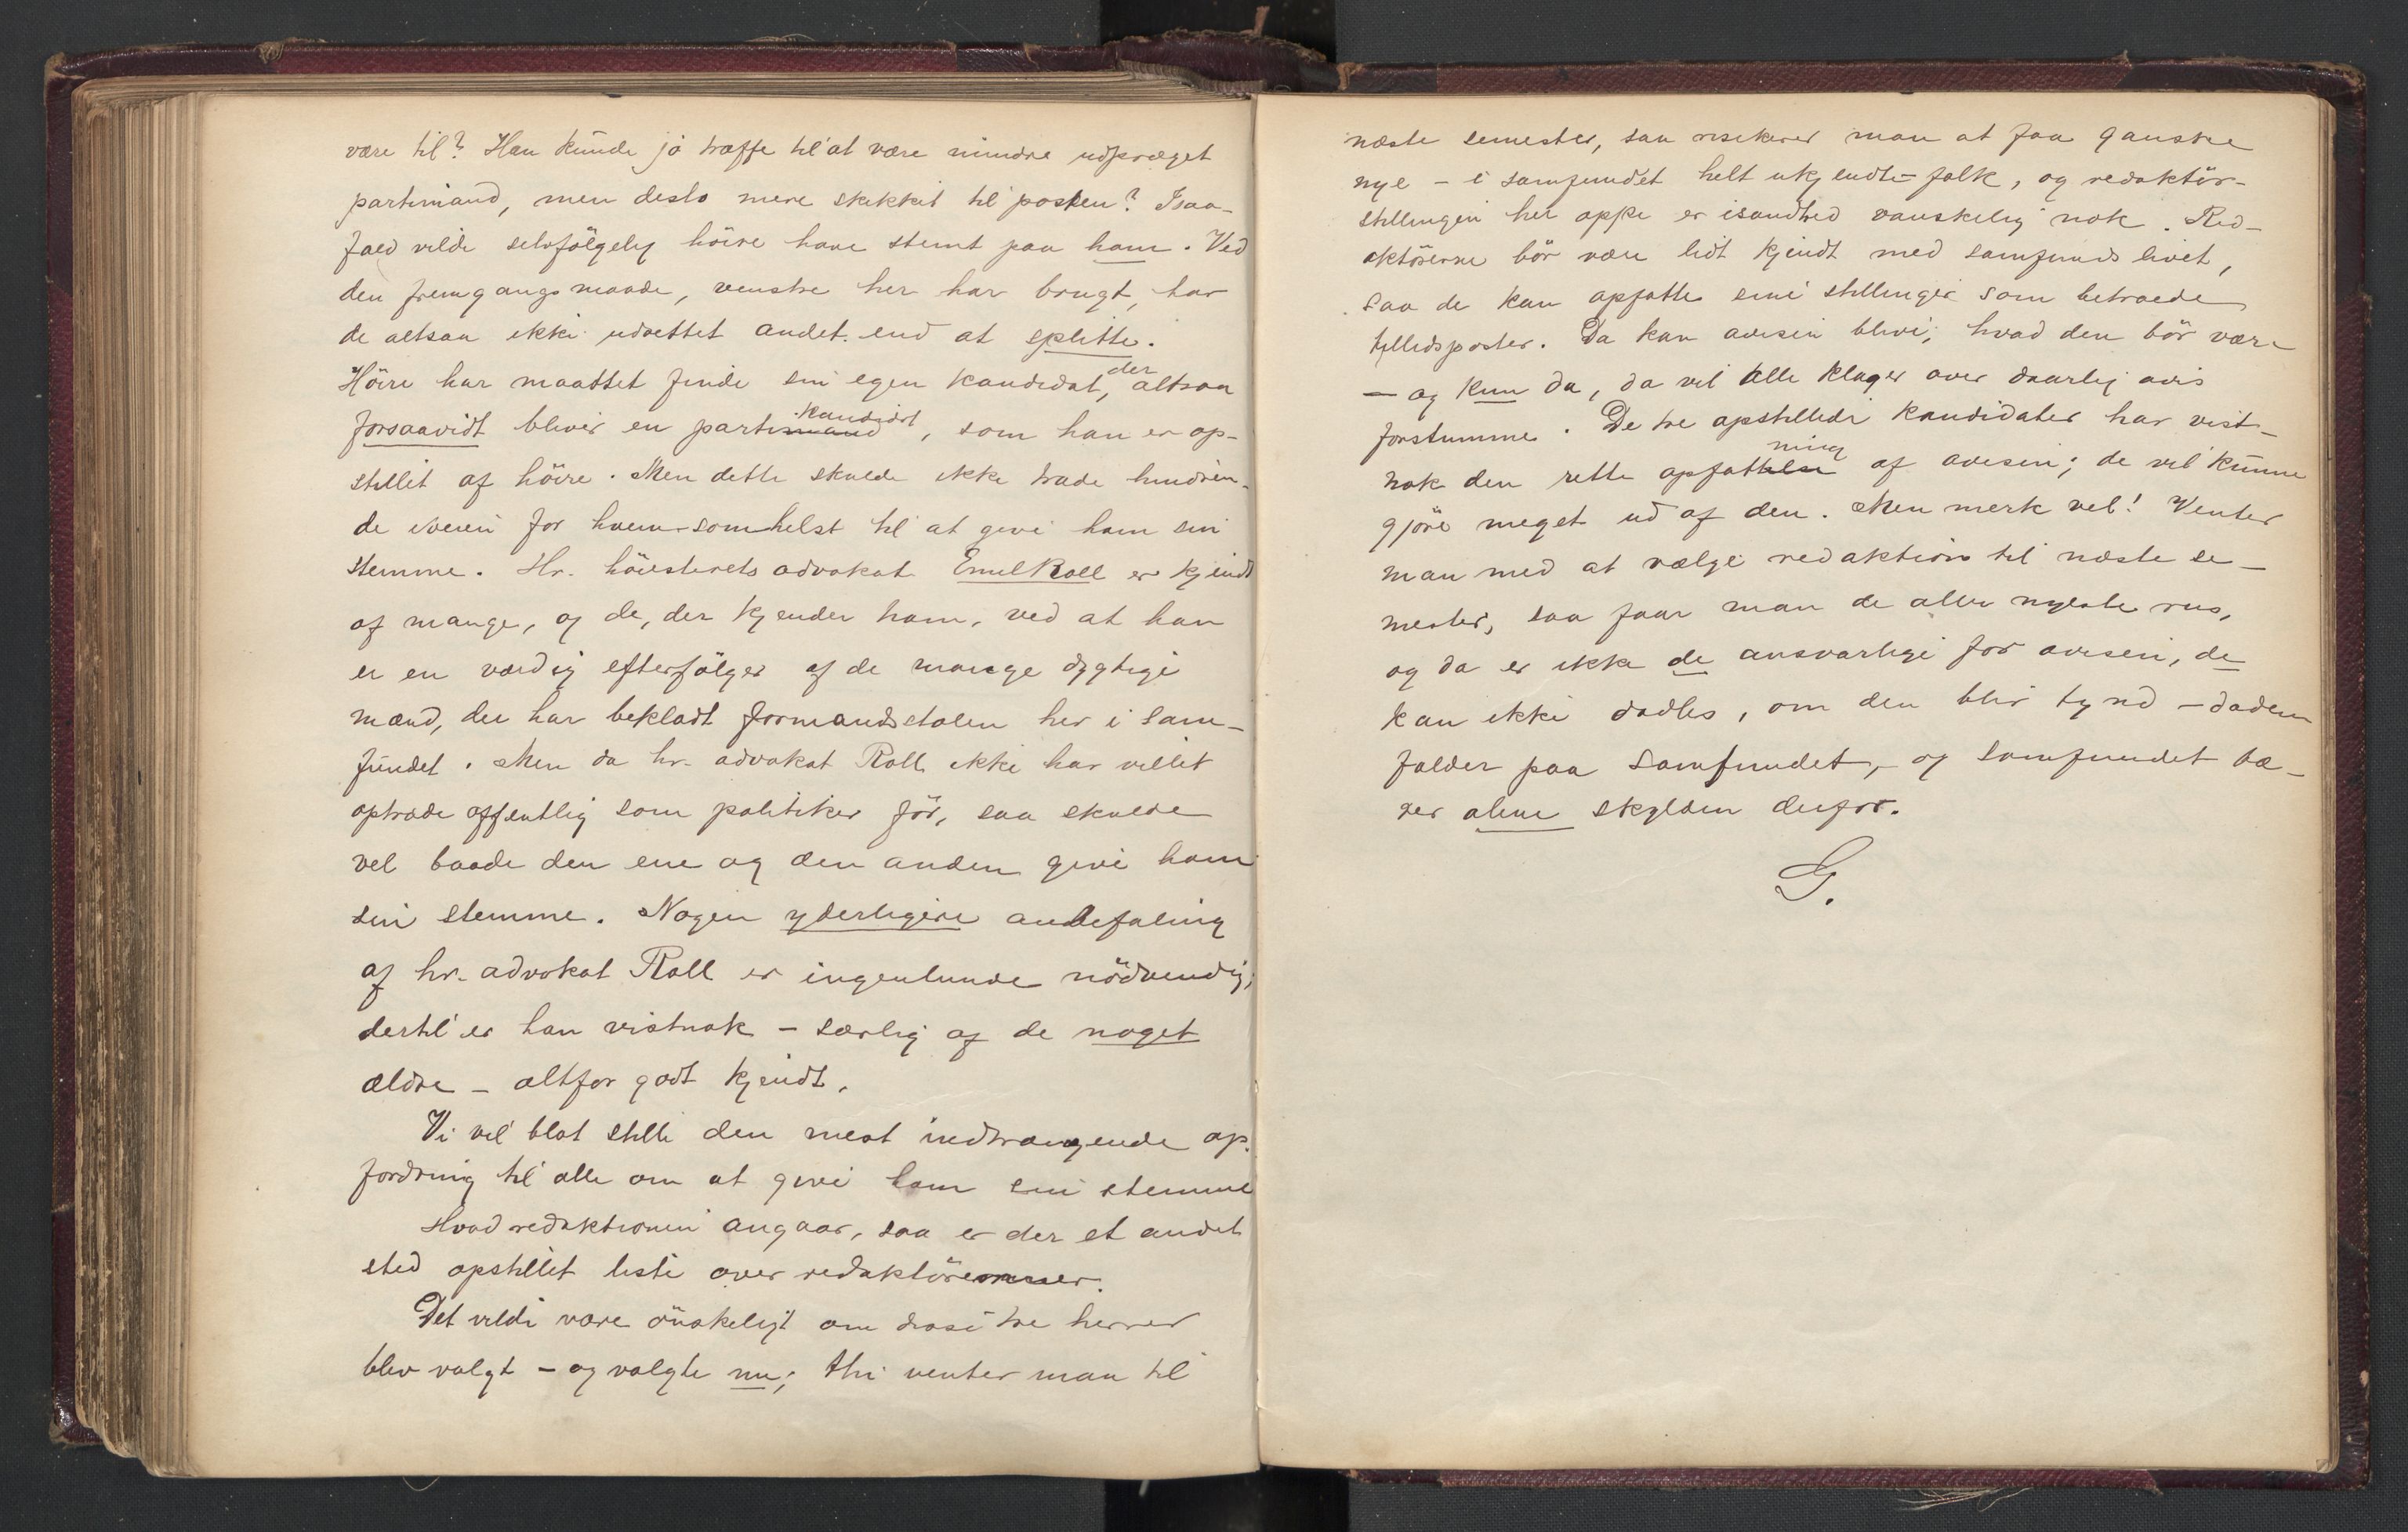 være til? Han kunde jo træffe til at være mindre udpræget
partimand, men desto mere skikket til posten? Isaa-
fald vilde selvfölgelig höire have stemt paa ham. Ved
den fremgangsmaade, venstre her har brugt, har
de altsaa ikke udrettet andet end at splitte.
Höire har maattet finde sin egen kandidat, der altsaa
forsaavidt bliver en partimand kandidat, som han er op-
stillet af höire. Men dette skulde ikke træde hindren-
de iveien for hvem-somhelst til at give ham sin
stemme. Hr. höiesterets advokat Emil Roll er kjendt
af mange, og de, der kjender ham, ved at han
er en værdig efterfölger af de mange dygtige
mænd, der har beklædt formandsstolen her i sam-
fundet. Men da hr. advokat Roll ikke har villet
optræde offentlig som politiker för, saa skulde
vel baade den ene og den anden give ham
sin stemme. Nogen yderligere anbefaling
af hr. advokat Roll er ingenlunde nödvendig;
dertil er han vistnok – særlig af de noget
ældre – altfor godt kjendt.
Vi vil blot stille den mest indtrængende op-
fordring til alle om at give ham sin stemme
Hvad redaktionen angaar, saa er der et andet
sted opstillet liste over redaktörerner.
Det vilde være önskeligt om disse tre herrer
blev valgt – og valgte nu; thi venter man til
næste semester, saa risikerer man at faa ganske
nye – i samfundet helt ukjendte – folk, og redaktör-
stillingen her oppe er isandhed vanskelig nok. Red-
aktörerne bör være lidt kjendt med samfundslivet,
saa de kan opfatte sine stillinger som betroede
tillidsposter. Da kan avisen blive, hvad den bör være
– og kun da, da vil alle klager over daarlig avis
forstumme. De tre opstillede kandidater har vist-
nok den rette opfattelse ning af avisen; de vil kunne
gjöre meget ud af den. Men merk vel! Venter
man med at vælge redaktion til næste se-
mester, saa faar man de aller nyeste rus,
og da er ikke de ansvarlige for avisen, de
kan ikke dadles, om den blir tynd – dadlen
falder paa samfundet, og samfundet bæ-
rer alene skylden derfor.
G.